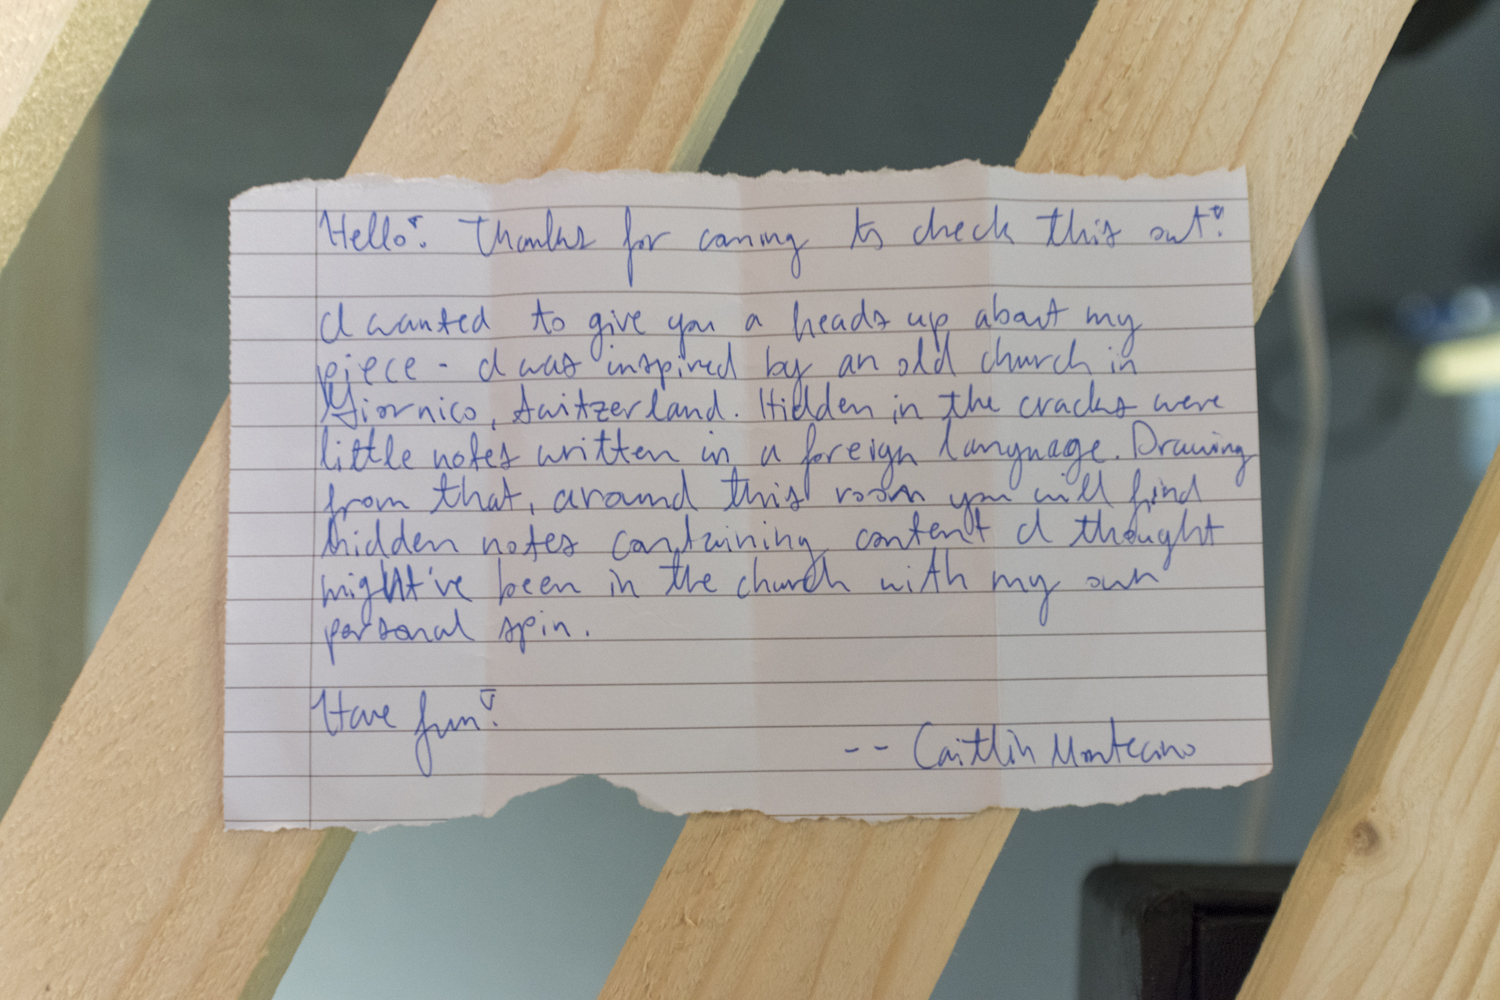 Hello! Thanks for coming to check this out!
I wanted to give you a heads up about my
piece - I was inspired by an old church in
Giornico, Switzerland. Hidden in the cracks were
little notes written in a foreign language. Drawing
from that, around this room you will find
hidden notes containing content I thought
might've been in the church with my own
personal spin.
Have fun!
-- Caitlin Montecino